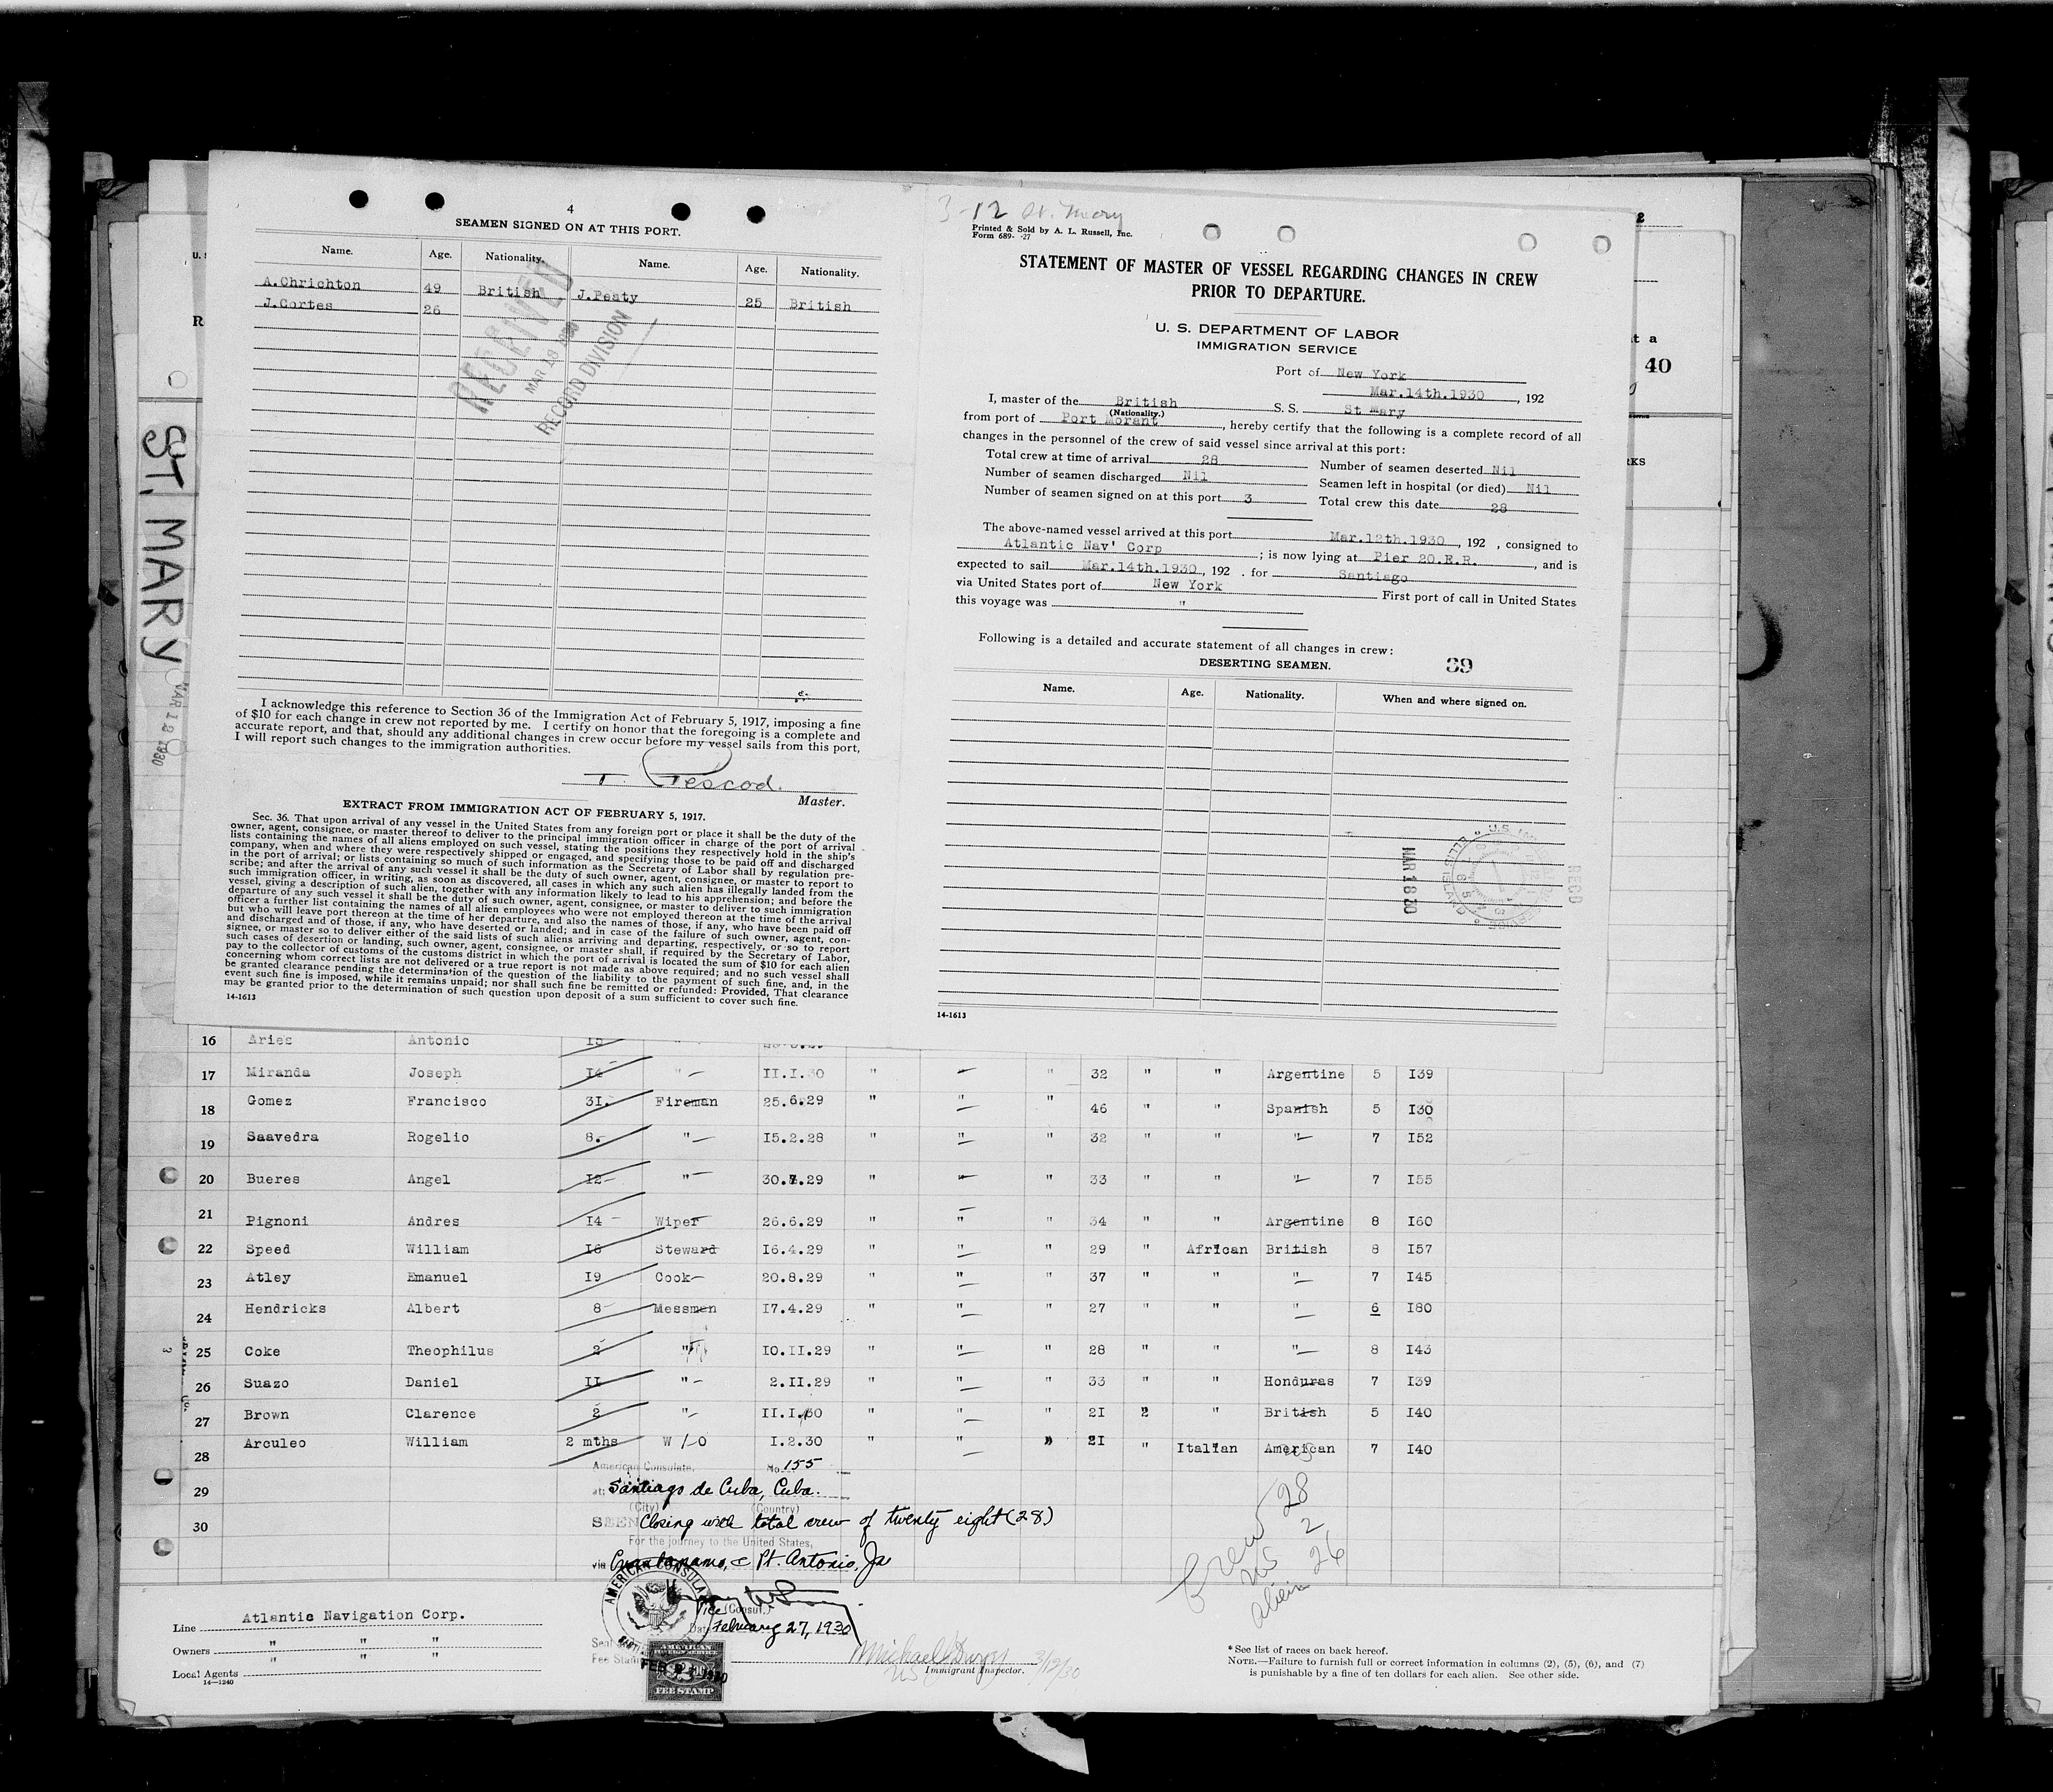 4
SEAMEN SIGNED ON AT THIS PORT.
Name. Age. Nationality. Name. Age. Nationality.
A.Chrichton 49 British J.Peaty 25 British
J.Cortes 26
RECEIVED
MAR 18 1930
RECORD DIVISION
I acknowledge this reference to Section 36 of the Immigration Act of February 5, 1917, imposing a fine
of $10 for each change in crew not reported by me. I certify on honor that the foregoing is a complete and
accurate report, and that, should any additional changes in crew occur before my vessel sails from this port,
I will report such changes to the immigration authorities.
T. Pescod.
Master.
EXTRACT FROM IMMIGRATION ACT OF FEBRUARY 5, 1917.
Sec. 36. That upon arrival of any vessel in the United States from any foreign port or place it shall be the duty of the
owner, agent, consignee, or master thereof to deliver to the principal immigration officer in charge of the port of arrival
lists containing the names of all aliens employed on such vessel, stating the positions they respectively hold in the ship's
company, when and where they were respectively shipped or engaged, and specifying those to be paid off and discharged
in the port of arrival; or lists containing so much of such information as the Secretary of Labor shall by regulation pre-
scribe; and after the arrival of any such vessel it shall be the duty of such owner, agent, consignee, or master to report to
such immigration officer, in writing, as soon as discovered, all cases in which any such alien has illegally landed from the
vessel, giving a description of such alien, together with any information likely to lead to his apprehension; and before the
departure of any such vessel it shall be the duty of such owner, agent, consignee, or master to deliver to such immigration
officer a further list containing the names of all alien employees who were not employed thereon at the time of the arrival
but who will leave port thereon at the time of her departure, and also the names of those, if any, who have been paid off
and discharged and of those, if any, who have deserted or landed; and in case of the failure of such owner, agent, con-
signee, or master so to deliver either of the said lists of such aliens arriving and departing, respectively, or so to report
such cases of desertion or landing, such owner, agent, consignee, or master shall, if required by the Secretary of Labor,
pay to the collector of customs of the customs district in which the port of arrival is located the sum of $10 for each alien
concerning whom correct lists are not delivered or a true report is not made as above required; and no such vessel shall
be granted clearance pending the determination of the question of the liability to the payment of such fine, and, in the
event such fine is imposed, while it remains unpaid; nor shall such fine be remitted or refunded: Provided, That clearance
may be granted prior to the determination of such question upon deposit of a sum sufficient to cover such fine.
14-1613
3-12 St. Mary
Printed & Sold by A. L. Russell, Inc.
Form 689- -27
STATEMENT OF MASTER OF VESSEL REGARDING CHANGES IN CREW
PRIOR TO DEPARTURE.
U. S. DEPARTMENT OF LABOR
IMMIGRATION SERVICE
Port of New York
Mar.14th.1930, 192
I, master of the British S. S. St Mary
(Nationality.)
from port of Port Morant, hereby certify that the following is a complete record of all
changes in the personnel of the crew of said vessel since arrival at this port:
Total crew at time of arrival 28 Number of seamen deserted Nil
Number of seamen discharged Nil Seamen left in hospital (or died) Nil
Number of seamen signed on at this port 3 Total crew this date 28
The above-named vessel arrived at this port Mar.12th.1930, 192 , consigned to
Atlantic Nav' Corp ; is now lying at Pier 20.E.R. , and is
expected to sail Mar.14th.1930, 192 . for Santiago
via United States port of New York First port of call in United States
this voyage was "
Following is a detailed and accurate statement of all changes in crew:
DESERTING SEAMEN. 39
Name. Age. Nationality. When and where signed on.
MAR 18 30
REC'D
14-1613
ST. MARY
MAR 12 1930
U. S
R
2
t a
40
RKS
16 Aries Antonio 15
17 Miranda Joseph 14 " II.I.30 " " " 32 " " Argentine 5 I39
18 Gomez Francisco 31. Fireman 25.6.29 " " " 46 " " Spanish 5 I30
19 Saavedra Rogelio 8. " I5.2.28 " " " 32 " " " 7 I52
20 Bueres Angel I2 " 30.8.29 " " " 33 " " " 7 I55
21 Pignoni Andres I4 Wiper 26.6.29 " " " 34 " " Argentine 8 I60
22 Speed William I6 Steward I6.4.29 " " " 29 " African British 8 I57
23 Atley Emanuel I9 Cook 20.8.29 " " " 37 " " " 7 I45
24 Hendricks Albert 8 Messman I7.4.29 " " " 27 " " " 6 I80
25 Coke Theophilus 2 " I0.II.29 " " " 28 " " " 8 I43
26 Suazo Daniel II " 2.II.29 " " " 33 " " Honduras 7 I39
27 Brown Clarence 2 " II.I.30 " " " 2I 2 " British 5 I40
28 Arculeo William 2 mths W/O I.2.30 " " " 2I " Italian American 7 I40
29
30
American Consulate, No. 155
at: Santiago de Cuba, Cuba.
(City) (Country)
SEEN Closing with total crew of twenty eight (28)
For the journey to the United States,
via Guantanamo, & Pt. Antonio, Ja
AMERICAN CONSULA
Vice (Consul.)
Date February 27, 1930
FEB 27 1930
AMERICAN FOREIGN SERVICE
FEE STAMP
Crew 28
US 2
alien 26
Line Atlantic Navigation Corp.
Owners " " "
Local Agents " " "
14—1240
Michael J Dwyer 3/12/30
US Immigrant Inspector.
* See list of races on back hereof.
NOTE.—Failure to furnish full or correct information in columns (2), (5), (6), and (7)
is punishable by a fine of ten dollars for each alien. See other side.